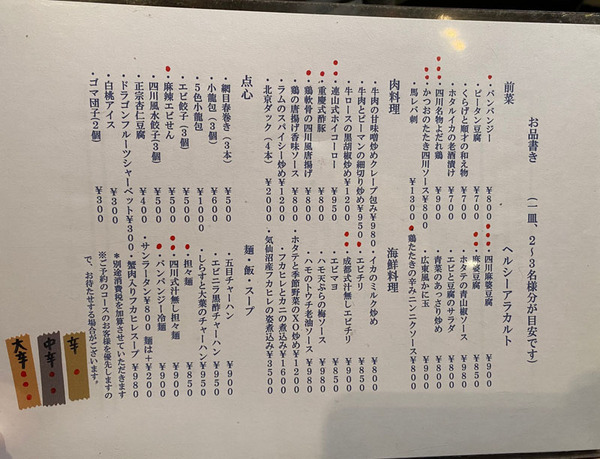 お品書き (一皿、2〜3名様分が目安です)
前菜
・バンバンジー ¥800
・ピータン豆腐
・くらげと順才の和え物 ¥700
・ホタルイカの老酒漬け ¥700
・四川名物よだれ鶏 ¥900
・かつおのたたき四川ソース ¥800
・馬レバ刺 ¥1300
ヘルシーアラカルト
・四川麻婆豆腐 ¥900
・麻婆豆腐 ¥850
・ホタテの青山椒ソース ¥980
・エビと豆腐のサラダ ¥800
・青菜のあっさり炒め ¥800
・広東風かに玉 ¥900
・鶏たたきの辛みニンニクソース ¥800
肉料理
・牛肉の甘味噌炒めクレープ包み ¥980
・牛肉とピーマンの細切り炒め ¥950
・牛ロースの黒胡椒炒め ¥1200
・連山式ホイコーロー ¥950
・重慶式酢豚 ¥800
・鶏軟骨の四川風唐揚げ ¥800
・鶏の唐揚げ香味ソース ¥800
・ラムのスパイシー炒め ¥1200
・北京ダック(4本) ¥2000
海鮮料理
・イカのミルク炒め ¥800
・エビチリ ¥900
・成都式汁無しエビチリ ¥900
・エビマヨ ¥850
・ハモ天ぷらの梅ソース ¥980
・ハモのトウチ老油ソース ¥980
・ホタテと季節野菜のXO炒め ¥1200
・フカヒレとカニの煮込み ¥1600
・気仙沼産フカヒレの姿煮込み ¥3500
点心
・網目春巻き(3本) ¥500
・小龍包(3個) ¥600
・5色小龍包 ¥1000
・エビ餃子(3個) ¥500
・麻辣エビせん ¥500
・四川風水餃子3個) ¥500
・正宗杏仁豆腐 ¥400
・ドラゴンフルーツシャーベット ¥300
・白桃アイス ¥300
・ゴマ団子2個) ¥300
麺・飯・スープ
・五目チャーハン ¥900
・エビニラ黒酢チャーハン ¥950
・しらすと大葉のチャーハン ¥950
・担々麺 ¥850
・四川式汁無し担々麺 ¥900
・バンバンジー冷麺 ¥900
・サンラータン ¥800 麺は+¥200
・蟹肉入りフカヒレスープ ¥980
*別途消費税を加算させていただきます
※ご予約のコースのお客様を優先しますので、お待たせする場合がございます。
辛
中辛
大辛